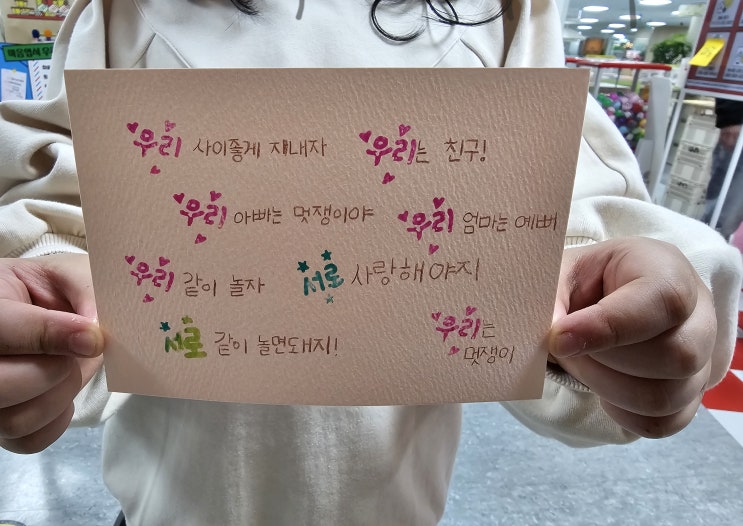 우리 사이좋게 지내자
우리는 친구!
우리 아빠는 멋쟁이야
우리 엄마는 예뻐
우리 같이 놀자
서로 사랑해야지
서로 같이 놀면돼지!
우리는
멋쟁이